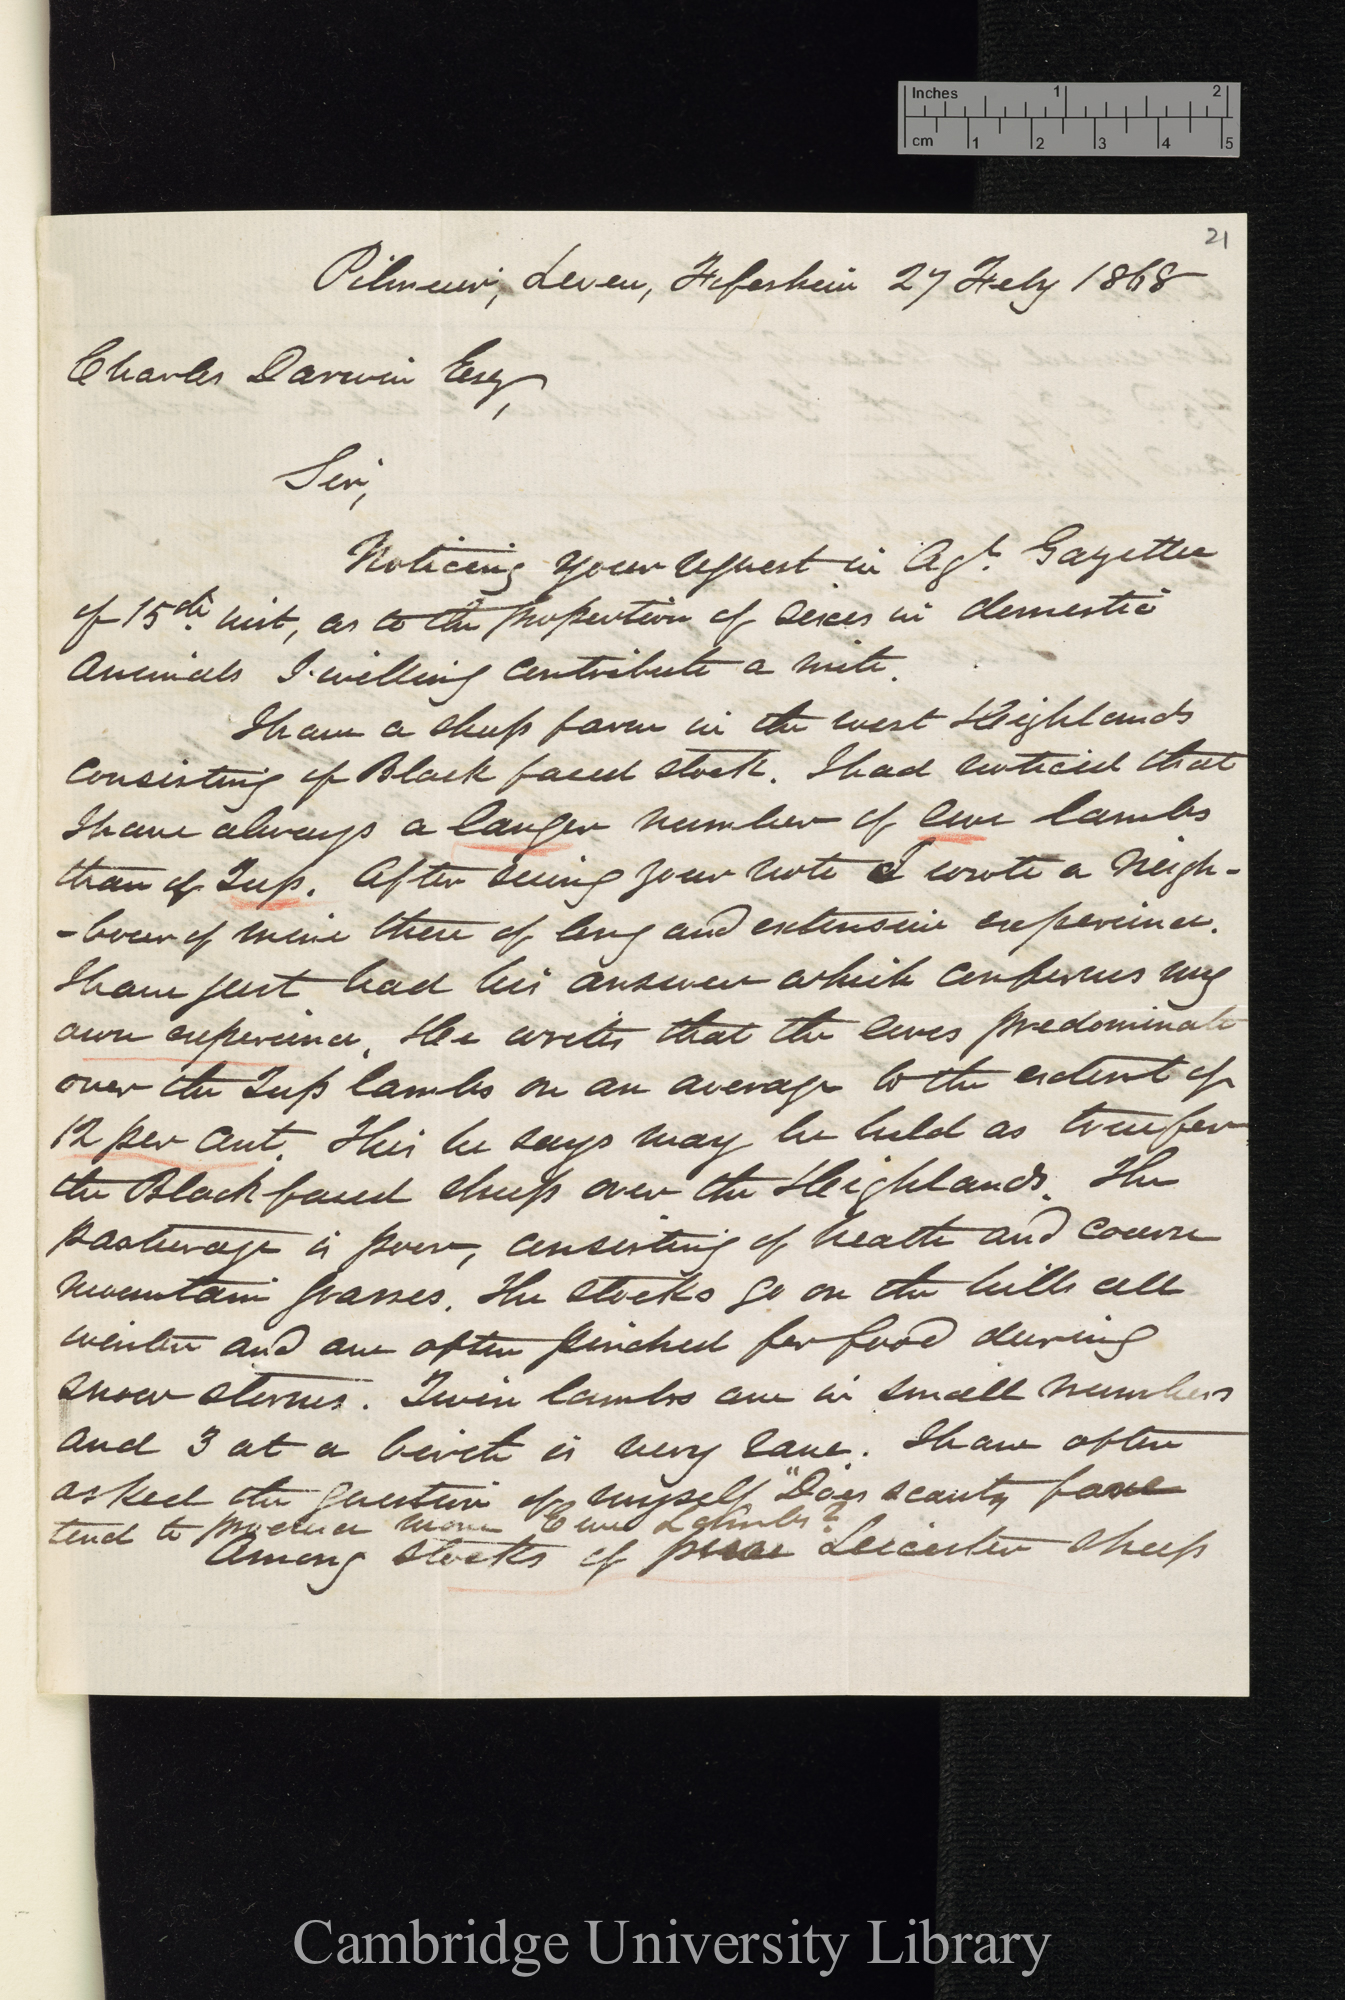 Inches 1 2
cm 1 2 3 4 5
21
Pilmuir, Leven, Fifeshire 27 Feby 1868
Charles Darwin Esq,
Sir,
Noticing your request in Agl. Gazette
of 15th inst, as to the proportion of sexes in domestic
animals I willing contribute a mite.
I have a sheep farm in the west Highlands
consisting of Black faced stock. I had noticed that
I have always a larger number of ewe lambs
than of Tup. After seeing your note I wrote a neigh-
-bour of mine there of long and extensive experience.
I have just had his answer which confirms my
own experience. He writes that the ewes predominate
over the Tup lambs on an average to the extent of
12 per cent. This he says may be held as true for
the Black faced sheep over the Highlands. The
pasturage is poor, consisting of heath and coarse
mountain grasses. The stocks go on the hills all
winter and are often pinched for food during
snow storms. Twin lambs are in small numbers
and 3 at a birth is very rare. I have often
asked the question of myself "Does scanty fare
tend to produce more Ewe Lambs?
Among stocks of pure Leicester sheep
Cambridge University Library